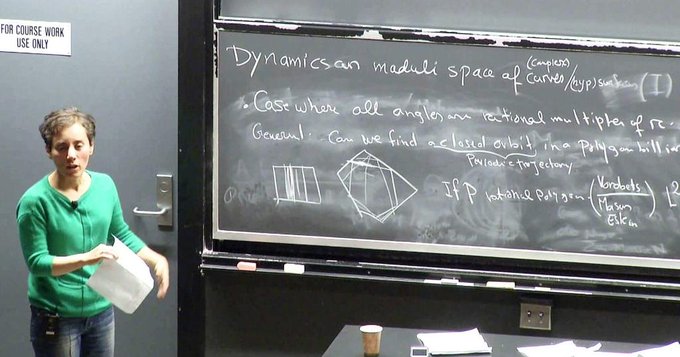 FOR COURSE WORK
USE ONLY
Dynamics on moduli space of (complex) curves/(hyp) surfaces (I)
• Case where all angles are rational multiples of π.
General: Can we find a closed orbit in a polygon billiar
Periodic trajectory
If P rational polygon (Vorobets/Masur Eskin)